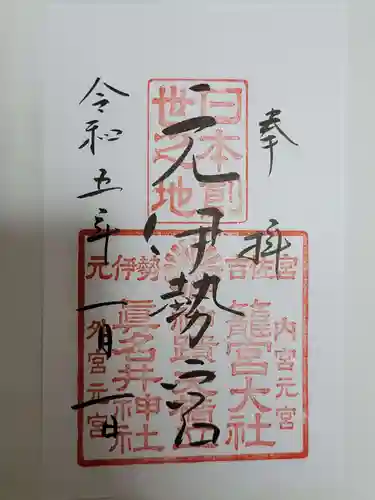 奉拝
日本最
世之地
元伊勢宮
元伊勢
吉佐宮
内宮元宮
籠宮大社
眞名井神社
外宮元宮
令和五年一月一日